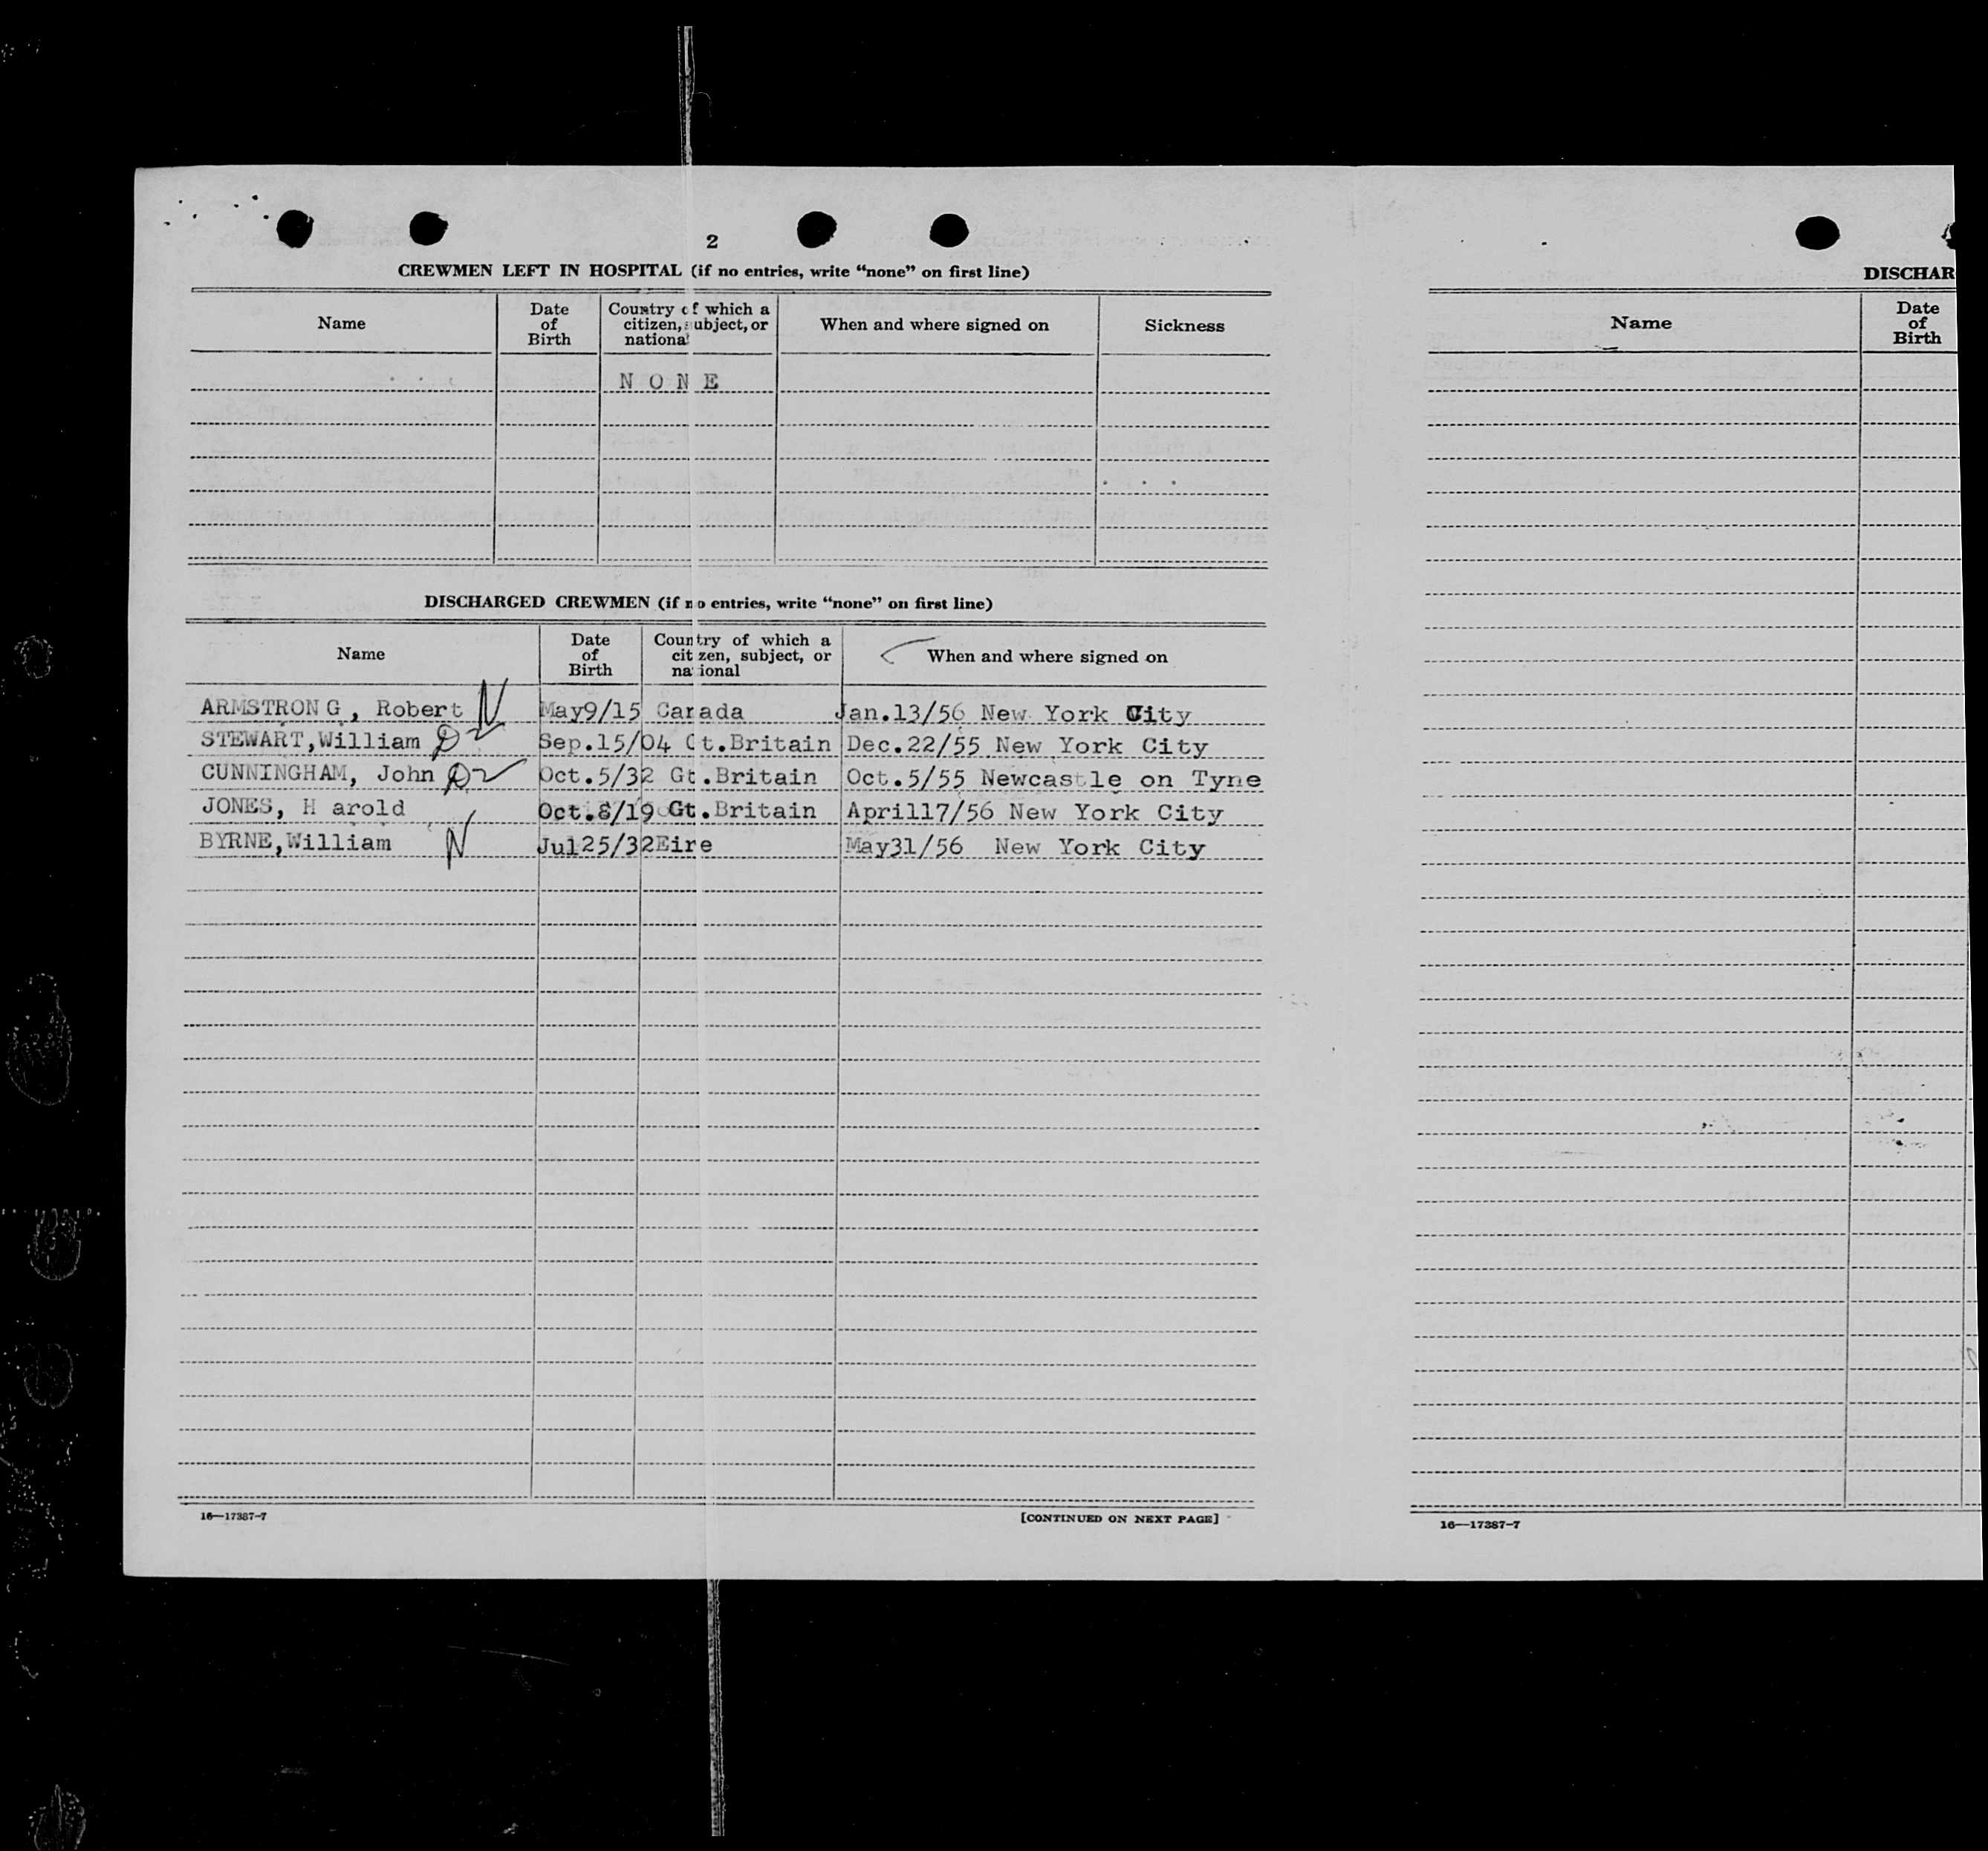 2
CREWMEN LEFT IN HOSPITAL (if no entries, write “none” on first line)
Name
Date of Birth
Country of which a citizen, subject, or national
When and where signed on
Sickness
N O N E
DISCHARGED CREWMEN (if no entries, write “none” on first line)
Name
Date of Birth
Country of which a citizen, subject, or national
When and where signed on
ARMSTRONG, Robert N May9/15 Canada Jan.13/56 New York City
STEWART,William Sep.15/04 Gt.Britain Dec.22/55 New York City
CUNNINGHAM, John Oct.5/32 Gt.Britain Oct.5/55 Newcastle on Tyne
JONES, H arold Oct.8/19 Gt.Britain April17/56 New York City
BYRNE,William N Jul25/32Eire May31/56 New York City
16—17387-7
[CONTINUED ON NEXT PAGE]
DISCHAR
Name
Date of Birth
16—17387-7